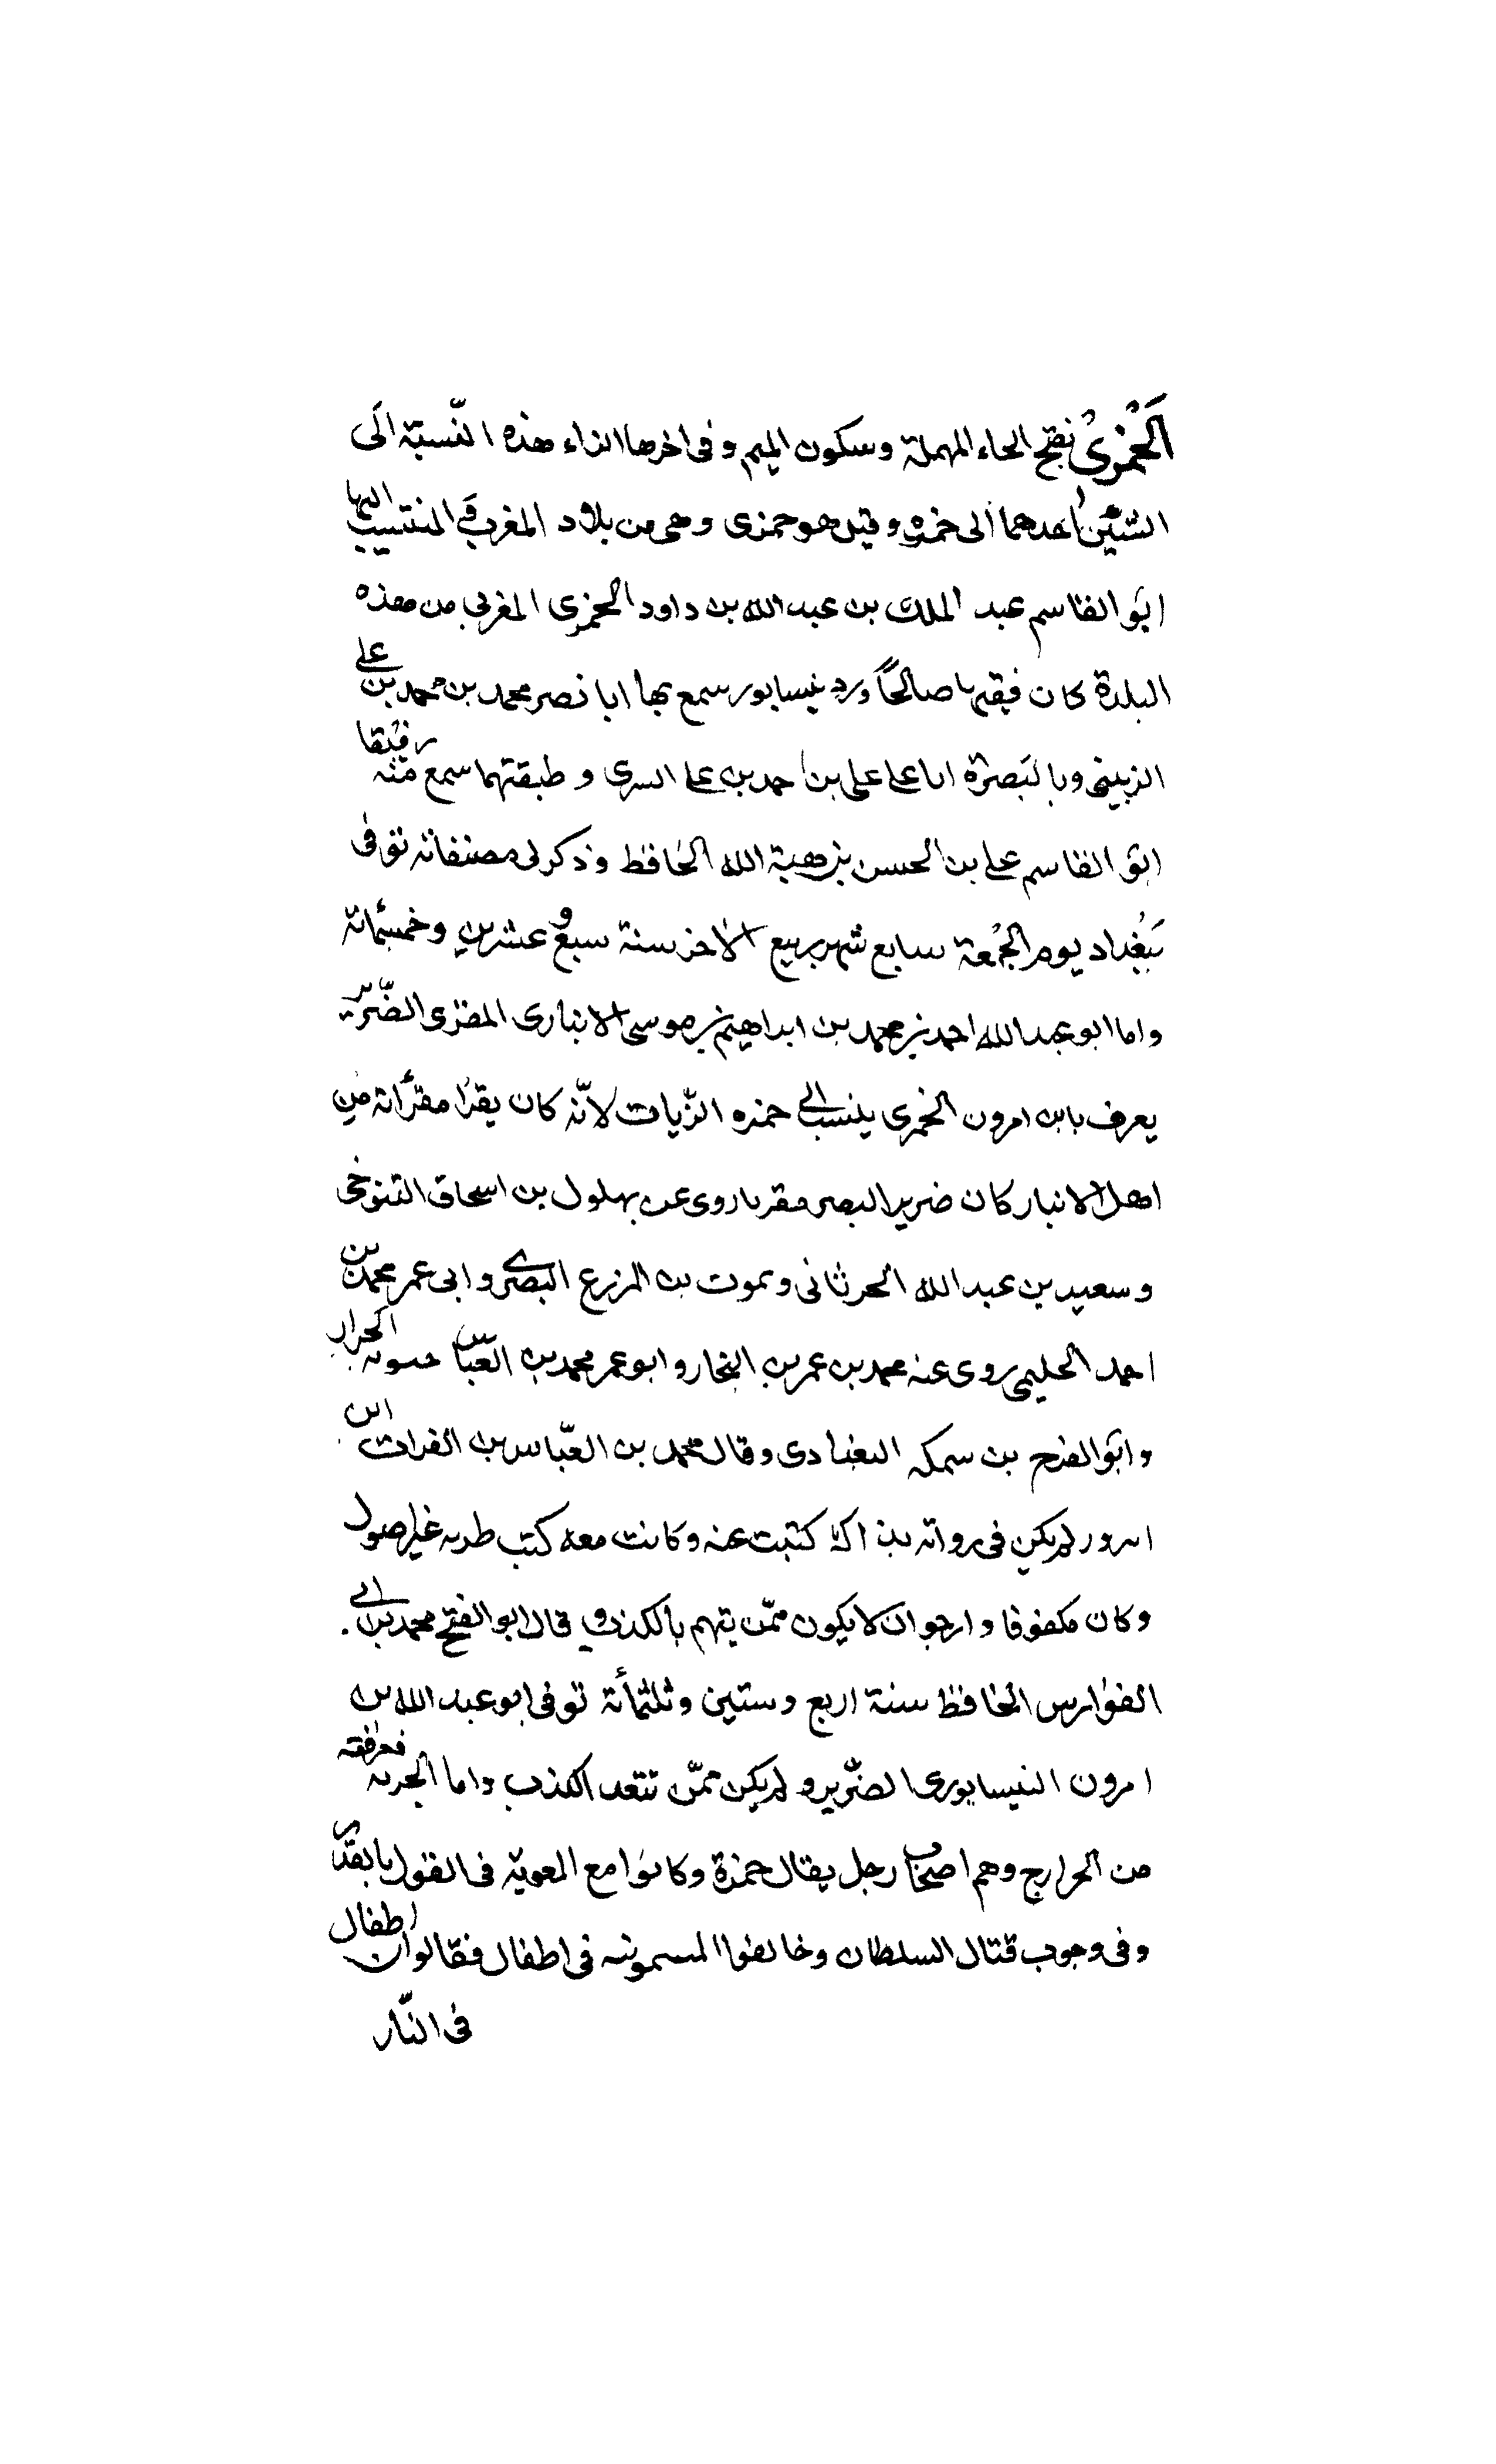 الَحَمْزىُ بفتح الحاء المهملة وسكون الميم وفى اخرها الزاء هذه النّسبة الَى
الشيئين احدهما الى حمزه وقيل هو حمزى وهى من بلاد المغرب فَى المنتسب اليها
ابَو القاسم عبد الملك بن عبد الله بن داود الحمزى المغربى من هذه
البلدة كان فقيها صالحًا ورد نيسابور سمع بها ابا نصر محمد بن محمد بن على
الزينبى وبالبَصرَة ابا على على بن احمد بن على السرى و طبقتهما سمع منه رفيقا
ابو القاسم على بن الحسن بن هبة الله الحافظ وذكر لى مصنفاته توفى
ببَغداد يوم الجُمعَة سابع شهر ربيع الاخر سنة سبع و عشرين وخمسمائة
واما ابو عبد الله احمد بن محمد بن ابراهيم بن موسى الانبارى المقرى الضّرير
يعرف بابن امرون الحمزى ينسب الى حمزه الزّيات لانّه كان يقرا مقرأته من
اهل الانبار كان ضرير البصر مقريا روى عن بهلول بن اسحاق التنوخى
وسعيد بن عبد الله الحرثانى ويموت بن المزرع البَصرى وابى عمر محمد بن
احمد الحليمى روى عنه محمد بن عمر بن النجار وابو عمر محمد بن العبّاس حسويه الحرار
وابَو الفتح بن سمكه البغدادى وقال محمد بن العبّاس بن الفرات ابن
امرور لم يكن فى رواته بذاك كتبت عنه وكانت معه كتب طريه غير اصول
وكان مكفوفا وارجو ان لا يكون ممّن يتهم بالكذب و قال ابو الفتح محمد بن ابى
الفوارس الحافظ سنة اربع وستين وثلثمأئة توفى ابو عبد الله بن
امرون النيسابورى الضّرير و لم يكن ممّن تتعمد الكذب واما الحمزيه ففرقة
من الخوارج وهم اصحاب رجل يقال حمزة وكانوا مع المعوية فى القول بالقدر
وفى وجوب قتال السلطان وخالفوا الميمونيه فى اطفال فقالوا ان اطفال
فى النّار